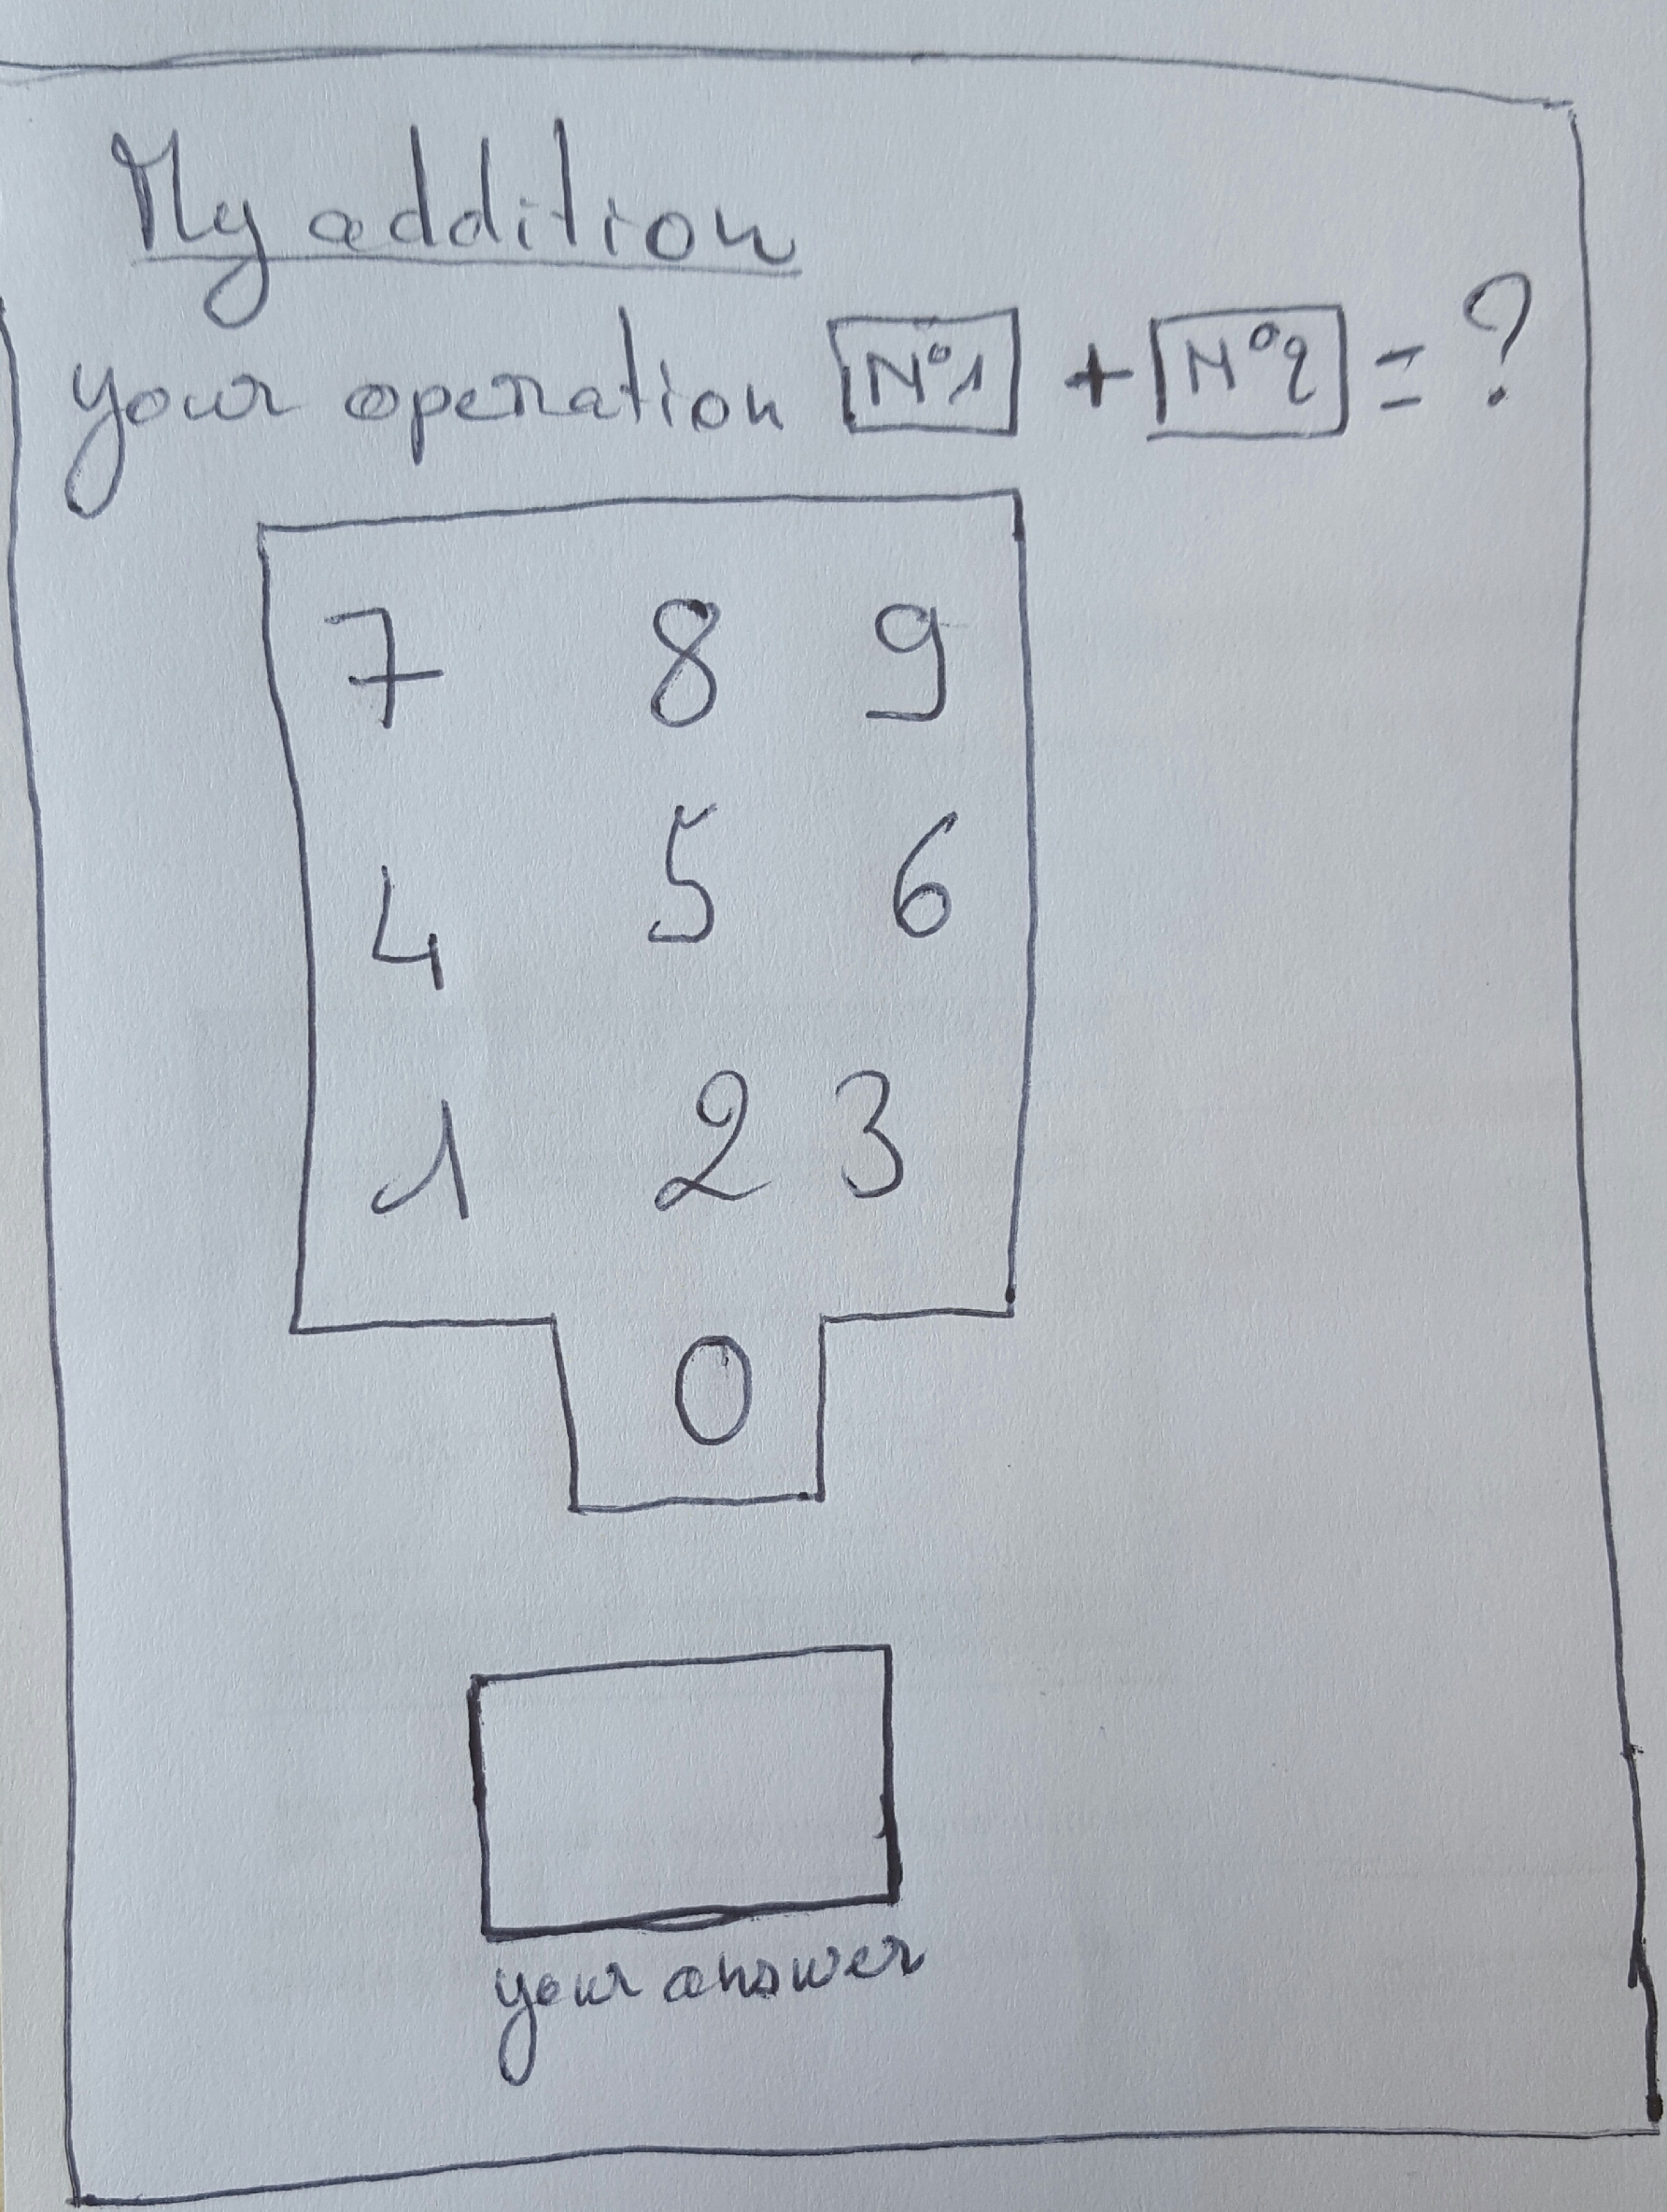 My addition
your operation N°1 + N°2 = ?
7 8 9
4 5 6
1 2 3
0
your answer